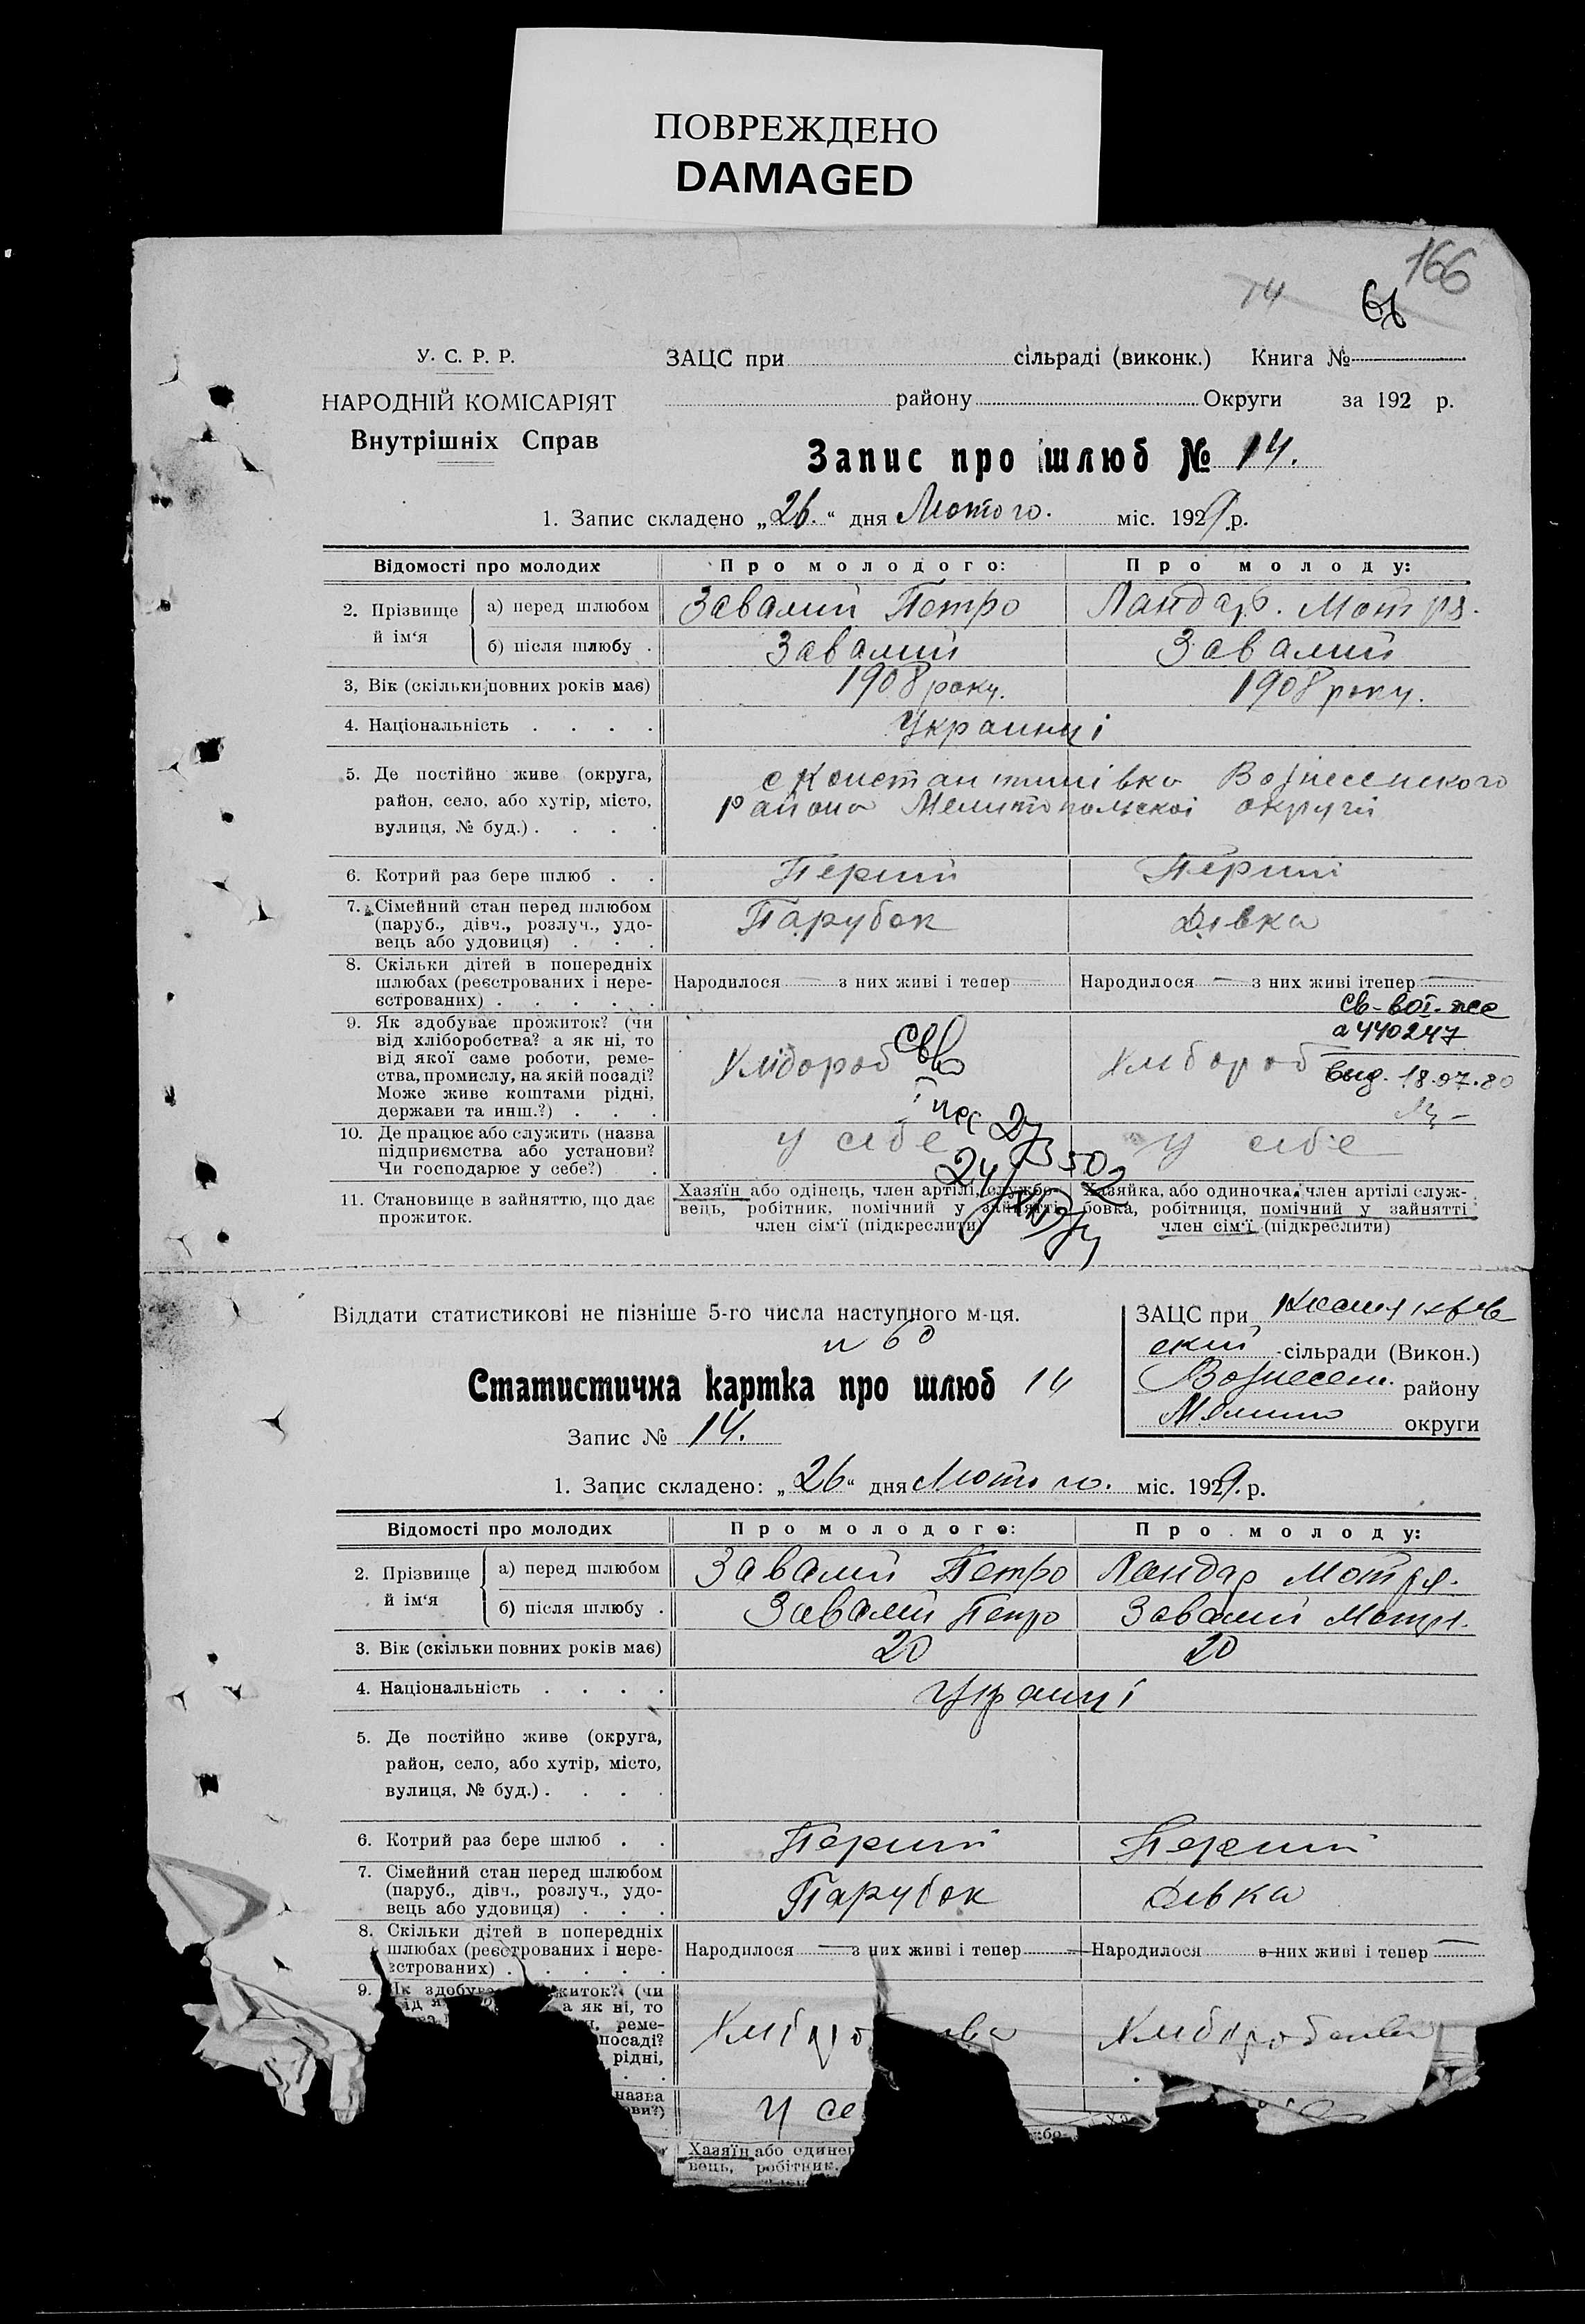 ПОВРЕЖДЕНО
DAMAGED
166
14
У. С. Р. Р.
ЗАЦС при сільраді (виконк.) Книга №
НАРОДНІЙ КОМІСАРІЯТ
району Округи за 192 р.
Внутрішніх Справ
Запис про шлюб № 14.
1. Запис складено „26.“ дня Лютого. міс. 1929 р.
Відомості про молодих Про молодого: Про молоду:
2. Прізвище й ім‘я а) перед шлюбом Завалий Петро Ландар. Мотря.
б) після шлюбу . Завалий Завалий
3, Вік (скільки повних років має) 1908 року. 1908 року.
4. Національність . . . . Украинці
5. Де постійно живе (округа, с Констан тинівка Вознесенского
район, село, або хутір, місто, района Мелитопольскоі округи
вулиця, № буд.) . . . .
6. Котрий раз бере шлюб . . Перший Перший
7. Сімейний стан перед шлюбом
(паруб., дівч., розлуч., удо- Парубок Дівка
вець або удовиця) . . .
8. Скільки дітей в попередніх
шлюбах (реєстрованих і нере- Народилося — з них живі і тепер Народилося — з них живі ітепер —
єстрованих) . . . . . .
9. Як здобуває прожиток? (чи
від хліборобства? а як ні, то а 440247
від якої саме роботи, реме- Хлібороб Хлібороб
ства, промислу, на якій посаді? выд. 18.07.80
Може живе коштами рідні,
держави та инш.?) . . .
10. Де працює або служить (назва у себе у себе
підприємства або установи?
Чи господарює у себе?) .
11. Становище в зайняттю, що дає Хазяїн або одінець, член артілі, службо- Хазяйка, або одиночка, член артілі служ-
прожиток. вець, робітник, помічний у зайнятті бовка, робітниця, помічний у зайнятті
член сім‘ї (підкреслити) член сім‘ї (підкреслити)
Віддати статистикові не пізніше 5-го числа наступного м-ця.
ЗАЦС при
ский -сільради (Викон.)
Вознесен. району
Мелито округи
Статистична картка про шлюб 14
Запис № 14.
1. Запис складено: „26“ дня Лютого. міс. 1929. р.
Відомості про молодих Про молодого: Про молоду:
2. Прізвище й ім‘я а) перед шлюбом Завалий Петро Ландар Мотря.
б) після шлюбу . Завалий Петро Завалий Мотря.
3. Вік (скільки повних років має) 20 20
4. Національність . . . . Украинці
5. Де постійно живе (округа,
район, село, або хутір, місто,
вулиця, № буд.) . . . .
6. Котрий раз бере шлюб . . Перший Перший
7. Сімейний стан перед шлюбом
(паруб., дівч., розлуч., удо- Парубок Дівка
вець або удовиця) . . .
8. Скільки дітей в попередніх
шлюбах (реєстрованих і нере- Народилося — з них живі і тепер — Народилося з них живі і тепер —
єстрованих) . . . . .
9. Як здобуває житок? (чи
а як ні, то
реме-
посаді?
рідні,
назва
ви?) у се
Хазяїн або одинец
вець, робітник,